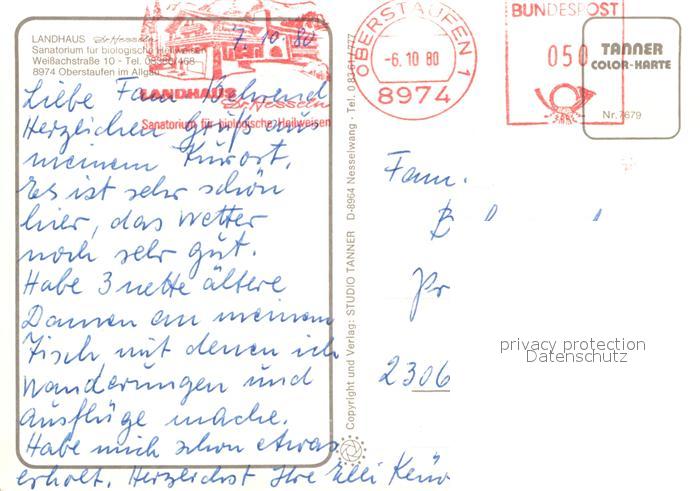 LANDHAUS Dr. Hessen
Sanatorium für biologische Heilweisen
Weißachstraße 10 - Tel. 08386/468
8974 Oberstaufen im Allgäu
7.10.80
LANDHAUS Dr. Hessen
Sanatorium für biologische Heilweisen
Liebe Fam. Behrend
Herzlichen Gruß aus
meinem Kurort.
Es ist sehr schön
hier, das Wetter
noch sehr gut.
Habe 3 nette ältere
Damen an meinem
Tisch mit denen ich
Wanderungen und
Ausflüge mache.
Habe mich schon etwas
erholt. Herzlichst Ihre Elli
Copyright und Verlag: STUDIO TANNER D-8964 Nesselwang - Tel. 0 83 61 / 777
OBERSTAUFEN 1
-6.10 80
8974
BUNDESPOST
050
TANNER
COLOR-KARTE
Nr. 7679
Fam.
B
Pr
2306
privacy protection
Datenschutz